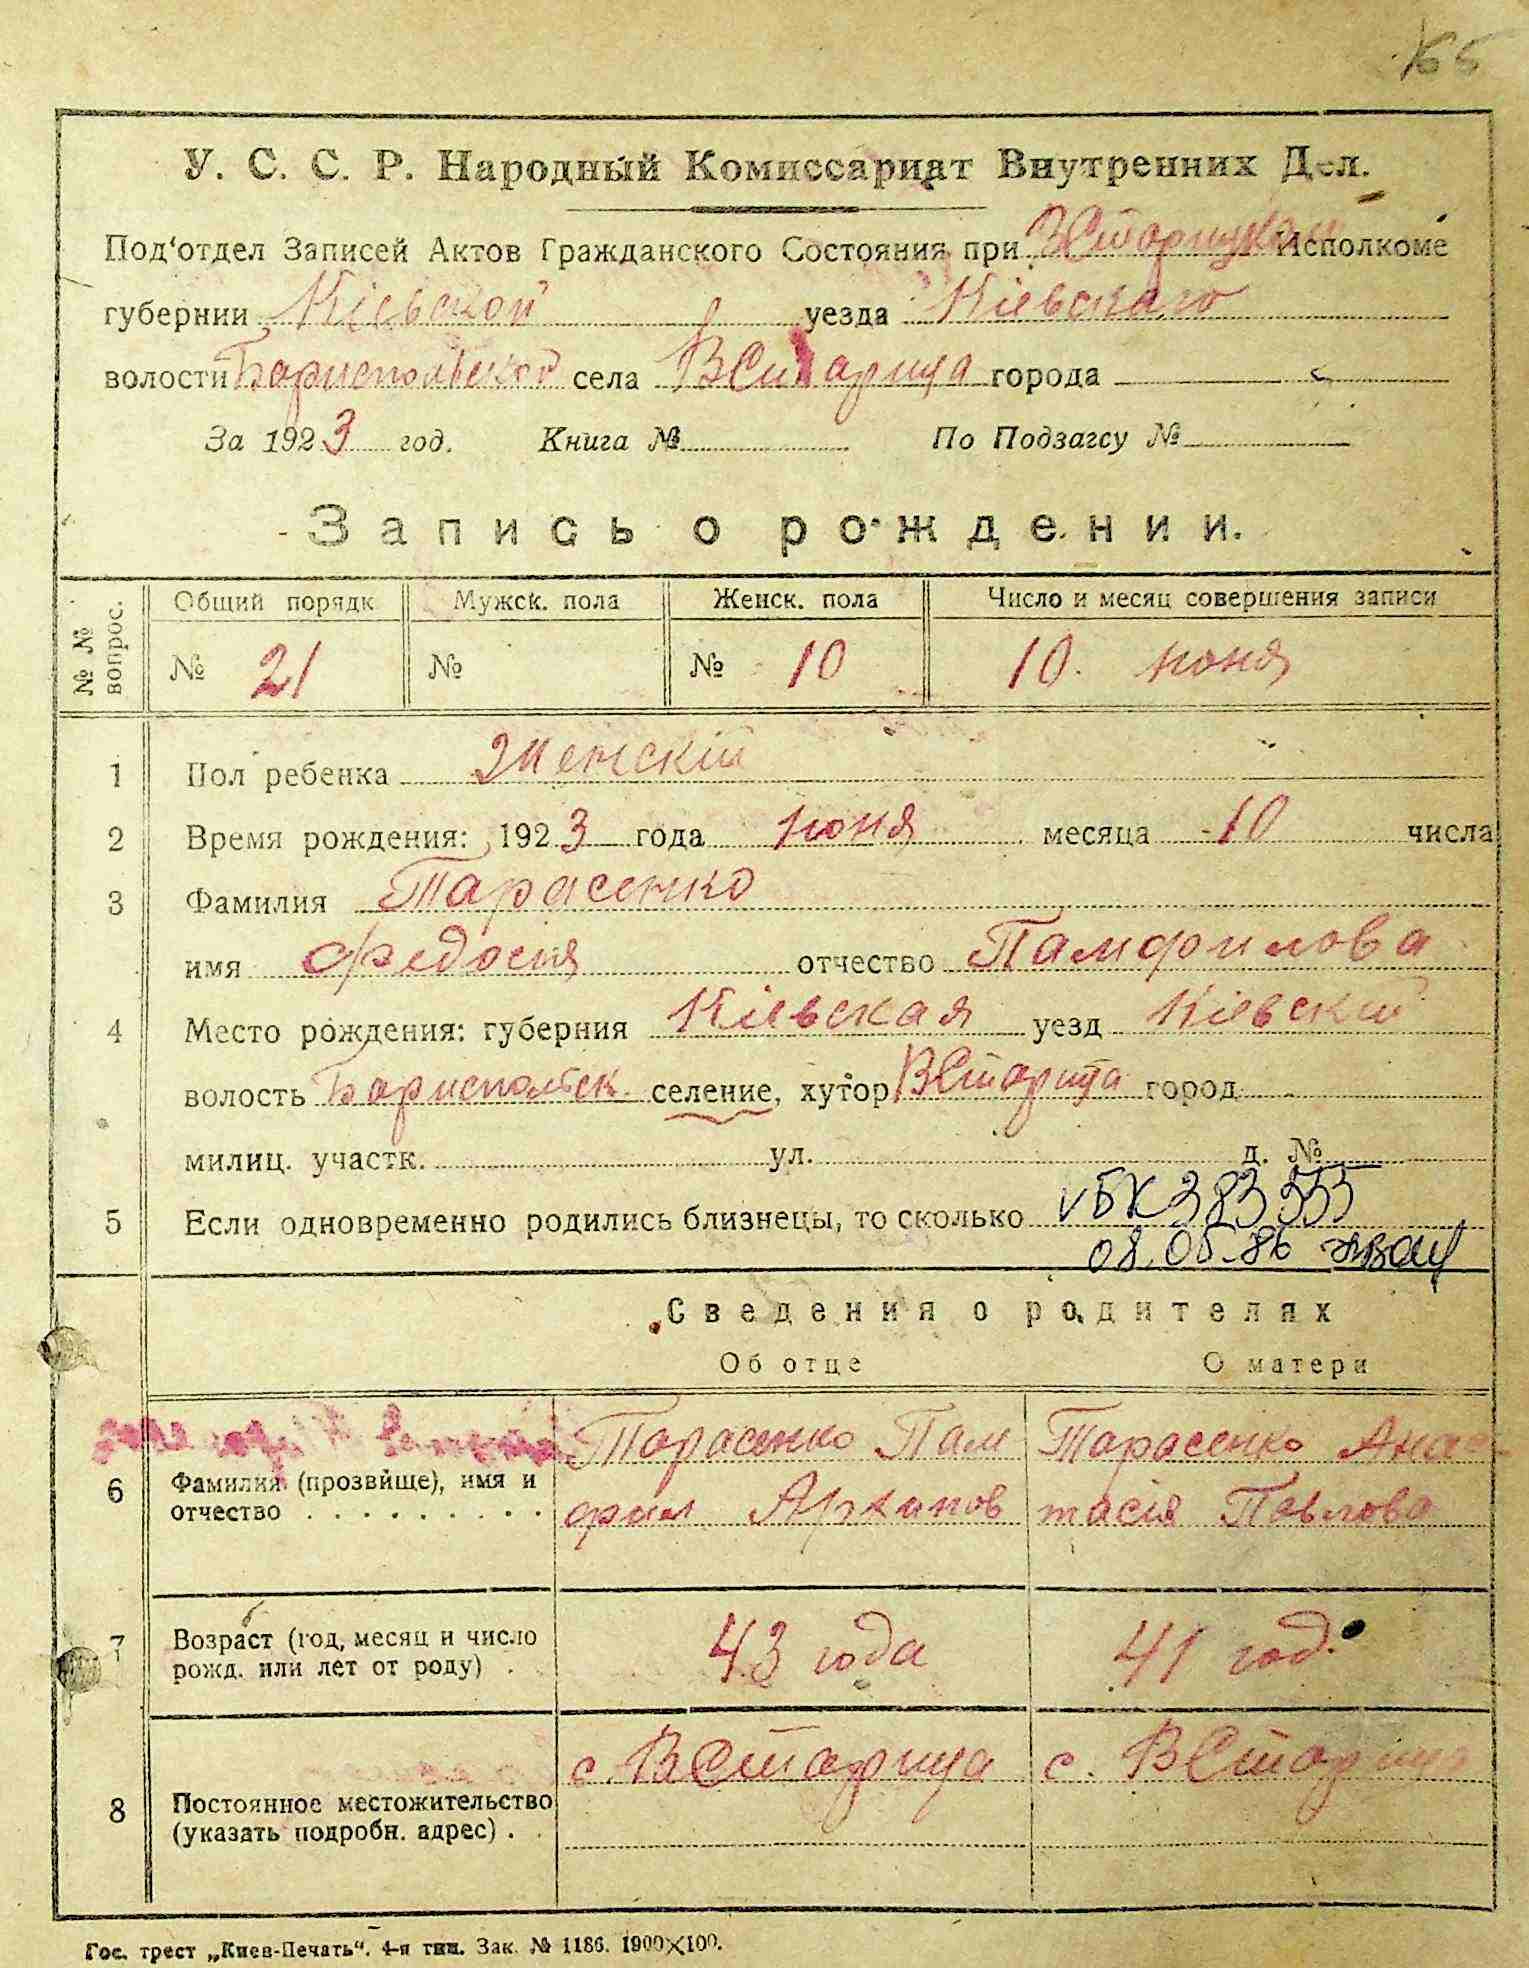 166
У. С. С. Р. Народный Комиссариат Внутренних Дел.
Под‘отдел Записей Актов Гражданского Состояния при ВСтарицком Исполкоме
губернии Кіевской уезда Кіевскаго
волости Бориспольской села ВСтарица города
За 1923 год. Книга № По Подзагсу №
Запись о рождении.
№ № вопрос. Общий порядк. Мужск. пола Женск. пола Число и месяц совершения записи
№ 21 № № 10 10. июня
1 Пол ребенка Женскій
2 Время рождения: 1923 года июня месяца 10 числа
3 Фамилия Тарасенко
имя Федосия отчество Памфилова
4 Место рождения: губерния Кіевская уезд Кіевский
волость Бориспольск. селение, хутор ВСтарица город
милиц. участк. ул. д. №
5 Если одновременно родились близнецы, то сколько VБК 383555
08.05.86
Сведения о родителях
Об отце О матери
Тарасенко Пам Тарасенко Анас
6 Фамилия (прозвище), имя и
отчество фил Архипов тасія Павлова
7 Возраст (год, месяц и число
рожд. или лет от роду) 43 года 41 год.
с. ВСтарица с. ВСтарица
8 Постоянное местожительство
(указать подробн. адрес)
Гос. трест „Киев-Печать“. 4-я тип. Зак. № 1186. 1900×100.